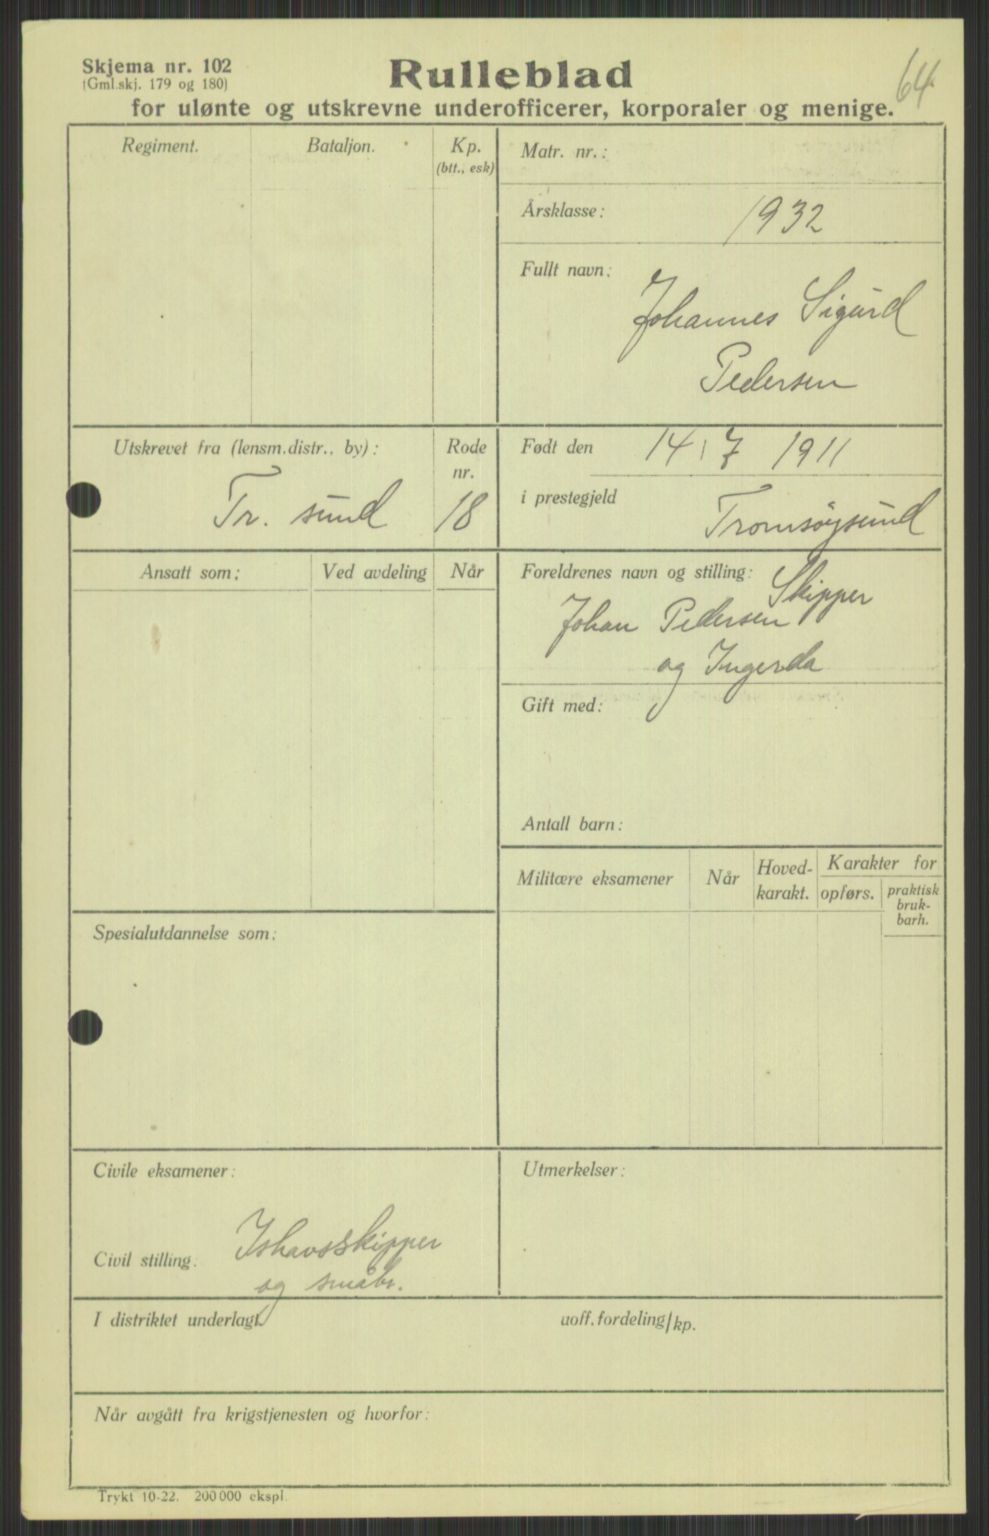 Skjema nr. 102
(Gml.skj. 179 og 180)
Rulleblad
64
for ulønte og utskrevne underofficerer, korporaler og menige.
Regiment.
Bataljon.
Kp.
(btt., esk)
Matr. nr.:
Årsklasse: 1932
Fullt navn:
Johannes Sigurd
Pedersen
Utskrevet fra (lensm.distr., by):
Tr. sund
Rode
nr.
18
Født den 14/7 1911
i prestegjeld Tromsøysund
Ansatt som:
Ved avdeling
Når
Foreldrenes navn og stilling: Skipper
Johan Pedersen
og Ingerda
Gift med:
Antall barn:
Militære eksamener
Når
Hoved-
karakt.
Karakter for
opførs.
praktisk
bruk-
barh.
Spesialutdannelse som:
Civile eksamener:
Utmerkelser:
Civil stilling: Ishavsskipper
og småbr.
I distriktet underlagt
uoff. fordeling/kp.
Når avgått fra krigstjenesten og hvorfor:
Trykt 10-22. 200 000 ekspl.